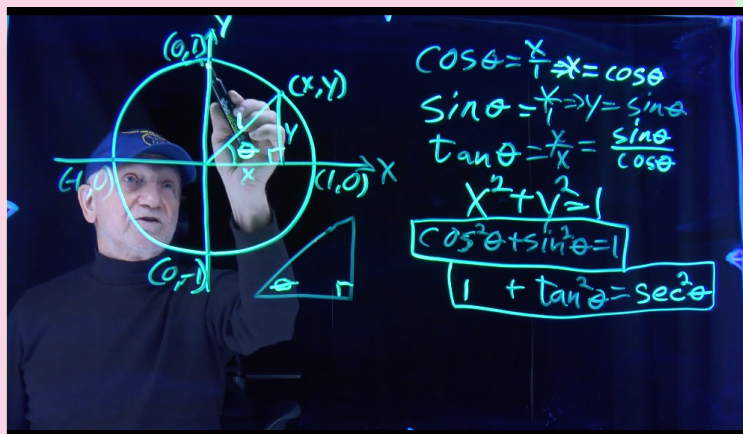 Y
(0,1)
(x,y)
1
Y
θ
x
(-1,0)
(1,0)
X
(0,-1)
θ
cosθ=x/1⇒x=cosθ
sinθ=y/1⇒y=sinθ
tanθ=y/x=sinθ/cosθ
x²+y²=1
cos²θ+sin²θ=1
1 + tan²θ=sec²θ